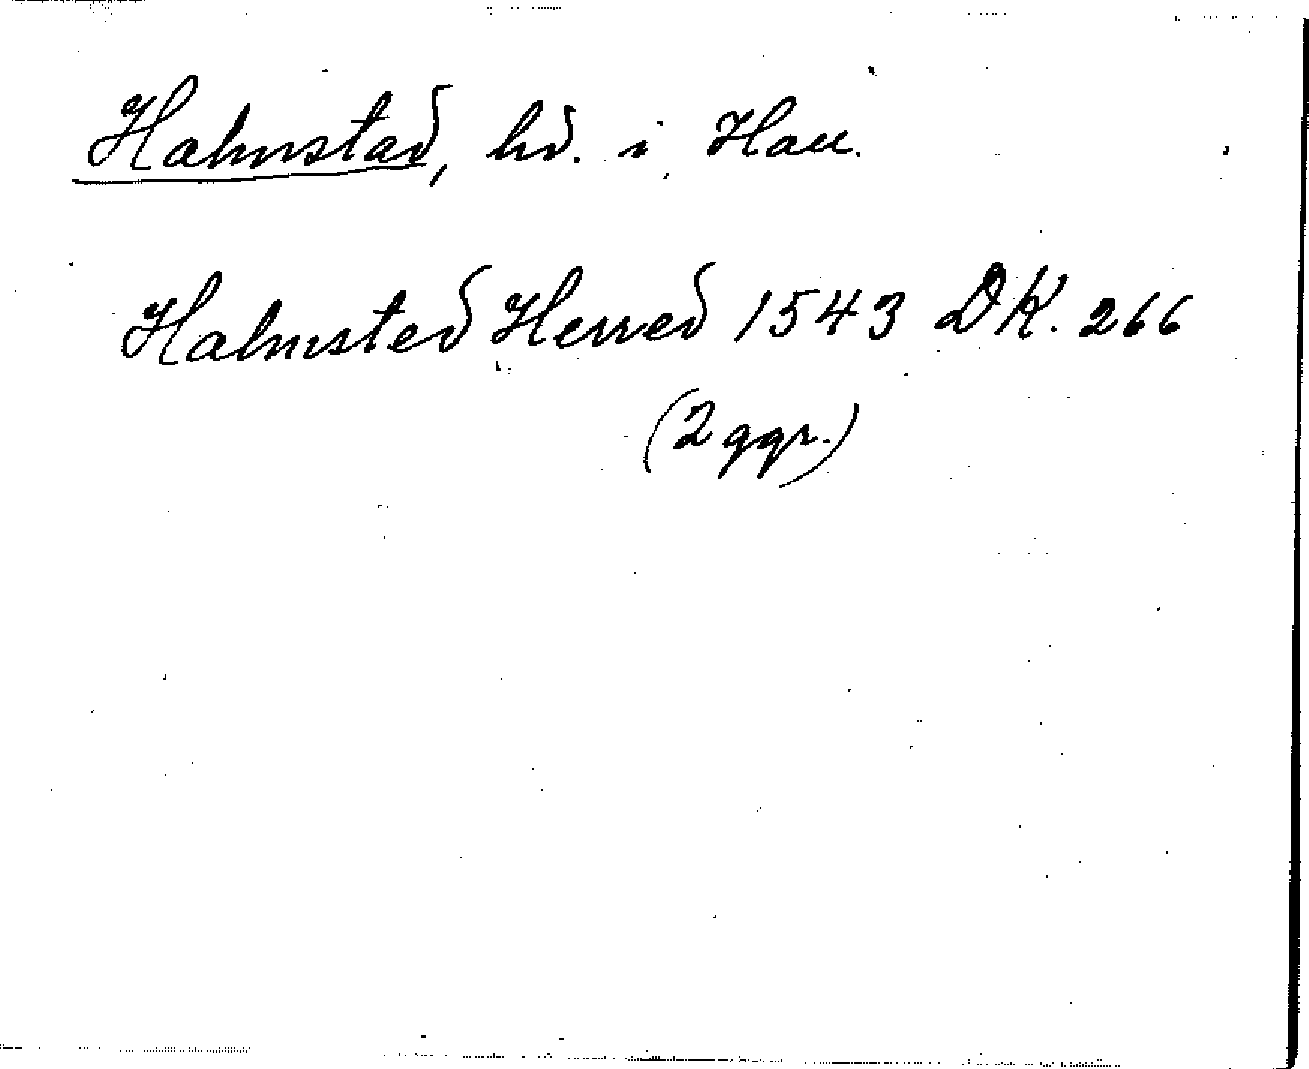 Halmstad, hd. i Hall.
Halmsted Herred 1543 DK. 266
(2 ggr.)